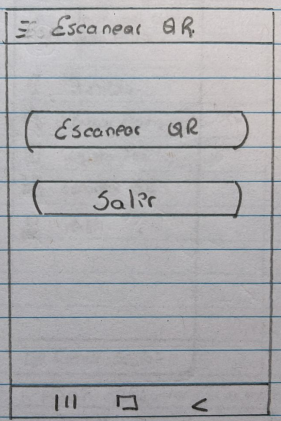 Escanear QR.
Escanear QR
Salir